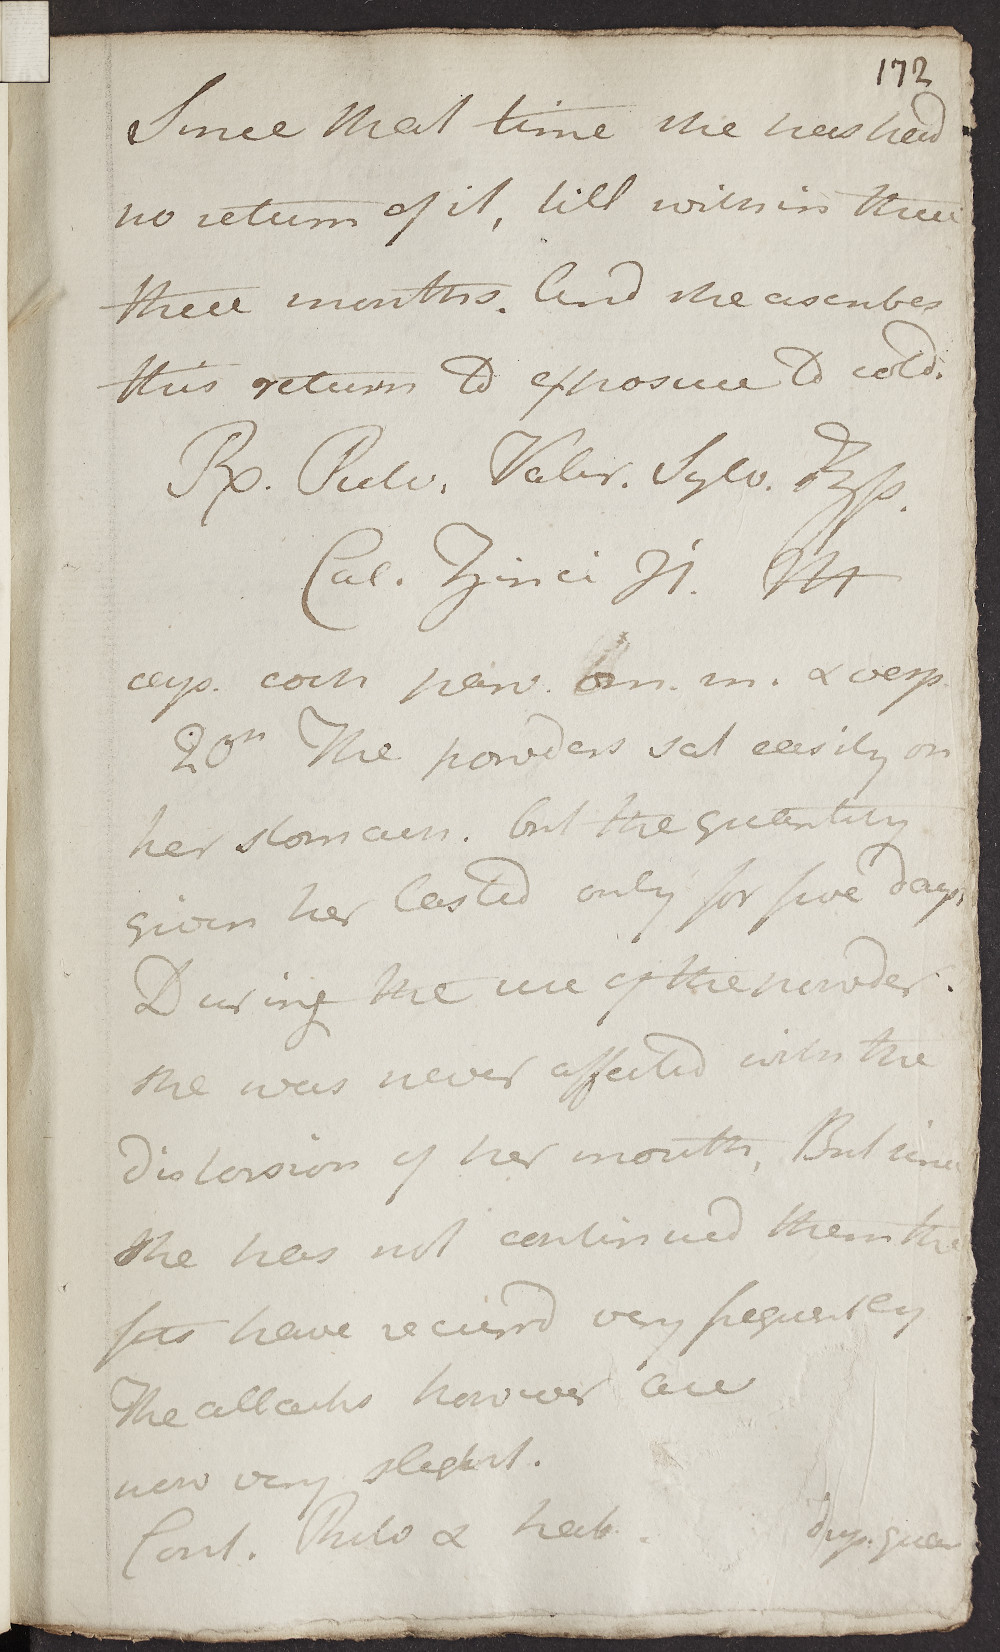 172
Since that time she has had
no return of it, till within these
three months. And she ascribes
this return to exposure to cold.
Rx. Pulv. Valer. Sylv. ℥ss.
Cal. Zinci ʒi. M
cap. coch parv. om. m. & vesp.
20th The powders sat easily on
her stomach. but the quantity
given her lasted only for five days.
During the use of the powder.
she was never affected with the
distorsion of her mouth, But since
she has not continued them the
fits have recurrd very frequently
The attacks however are
now very slight.
Cont. Pulv & heb.